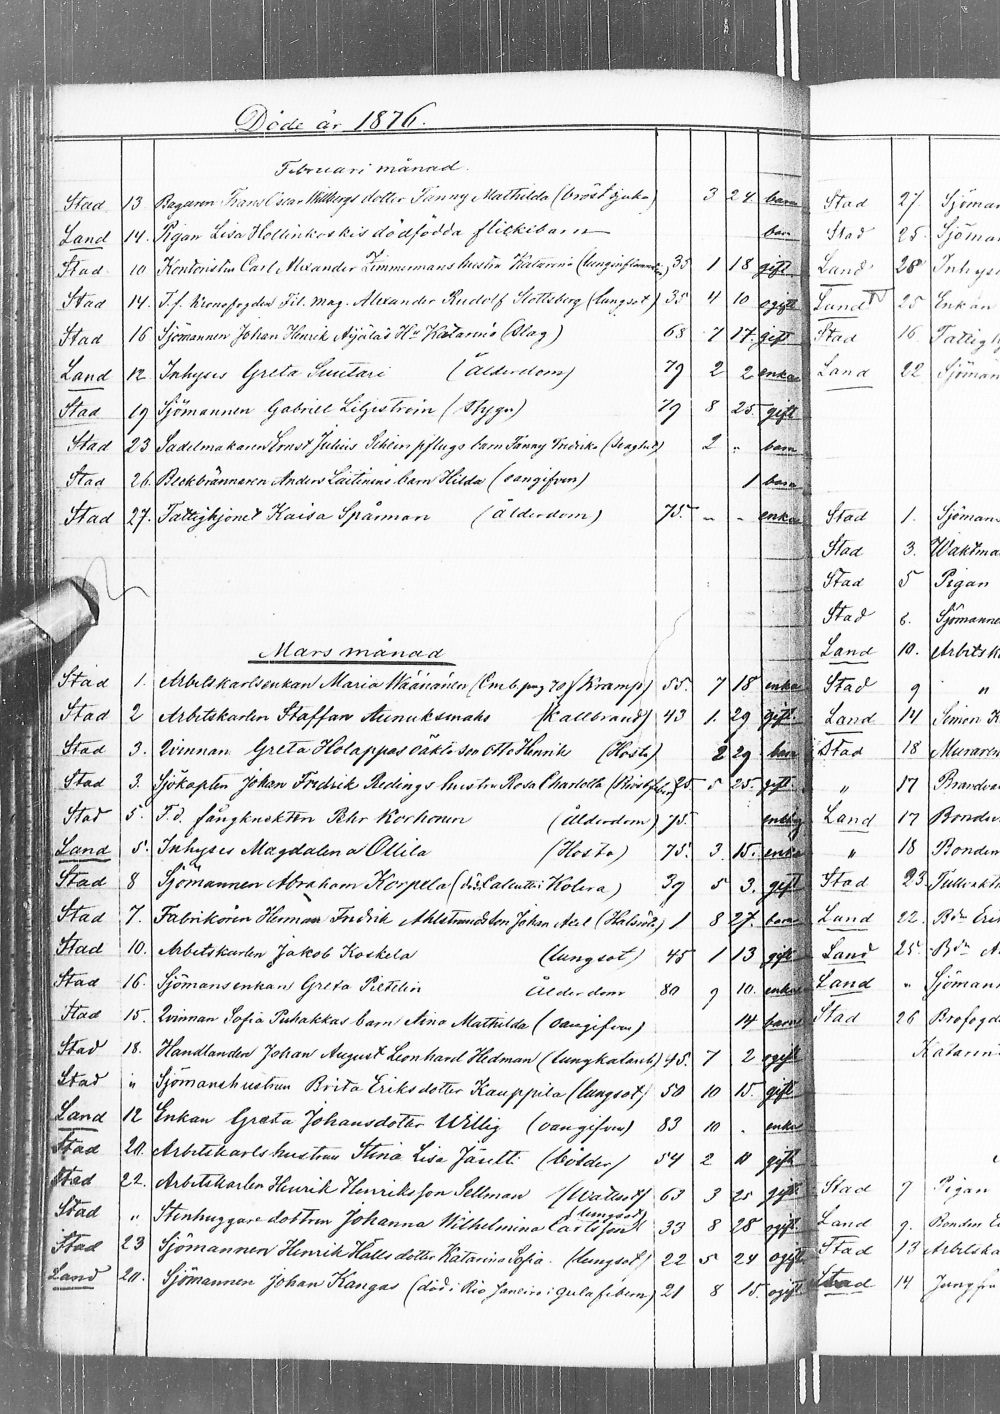 Döde år 1876.
Februari månad.
Stad 13 Bagaren Frans Oscar Willbergs dotter Fanny Mathilda (bröstsjuka) 3 24 barn
Land 14. Pigan Lisa Hollinkoskis dödfödda flickebarn barn
Stad 10 Kontoristen Carl Alexander Zimmermans hustru Katarina 35 1 18 gift
Stad 14. T.f. Kronofogden Fil. Mag. Alexander Rudolf Slottsberg (lungsot) 35 4 10 ogift
Stad 16 Sjömannen Johan Henrik Äijäläs Hu Katarina (Slag) 68 7 17. gift
Land 12 Inhyses Greta Suutari (Ålderdom) 79 2 2 enka
Stad 19 Sjömannen Gabriel Liljeström (Stygn) 79 8 25. gift
Stad 23 Sadelmakaren Ernst Julius barn Fanny Fredrika (Slaghet) 2 „ barn
Stad 26. Beckbrännaren Anders Laitinens barn Hilda (oangifven) 1 barn
Stad 27. Fattighjonet Kaisa Spårman (Ålderdom) 75. „ „ enka
Mars månad
Stad 1. Arbetskarlsenkan Maria Wäänänen (Kramp) 55. 7 18 enka
Stad 2 Arbetskarlen Staffan (Kallbrand) 43 1. 29 gift.
Stad 3. Qvinnan Greta Holappas oäkta son Otto Henrik (Hosta) 2 29 barn
Stad 3. Sjökapten Johan Fredrik Redings hustru Rosa Charlotta 25 5 25. gift.
Stad 5. F.d. fångknekten Pehr Korhonen (Ålderdom) 75.
Land 5. Inhyses Magdalena Ollila (Hosta) 75. 3 15. enka
Stad 8 Sjömannen Abraham Korpela (död i Calcutta i Kolera) 39 5 3. gift
Stad 7. Fabrikören Herman Fredrik son Johan Axel 1 8 27. barn
Stad 10. Arbetskarlen Jakob Koskela (lungsot) 45 1 13 gift
Stad 16. Sjömansenkan Greta Pietelin Ålderdom 80 9 10. enka
Stad 15. Qvinnan Sofia Puhakkas barn Aina Mathilda (oangifven) 14 barn
Stad 18. Handlanden Johan August Leonhard Hedman (lungkatarrh) 45. 7 2 ogift
Stad „ Sjömanshustrun Brita Eriksdotter Kauppila (lungsot) 50 10 15. gift
Land 12 Enkan Greta Johansdotter Willig (oangifven) 83 10 . enka
Stad 20. Arbetskarls hustrun Stina Lisa Jäsetti (bölder) 54 2 11 gift
Stad 22. Arbetskarlen Henrik Henriksson Sellman (Wattusot) 63 3 25 gift
Stad „ Stenhuggare dottren Johanna Wilhelmina (lungsot) 33 8 28 ogift
Stad 23 Sjömannen Henrik Halls dotter Katarina Sofia. (lungsot) 22 5 24 ogift
Land 20. Sjömannen Johan Kangas (död i Rio Janeiro i gula febern) 21 8 15. ogift
Stad 27 Sjöman
Stad 25. Sjöman
Land 28 Inhyse
Land 25 Enkan
Stad 16 Fattigh
Land 22 Sjöman
Stad 1. Sjömans
Stad 3. Waktma
Stad 5 Pigan
Stad 6. Sjömanne
Land 10. Arbetsk
Stad 9 „
Land 14 Simon K
Stad 18 Muraren
„ 17 Brandva
Land 17 Bonden
„ 18 Bonden
Stad 23.
Land 22. Bdn Eri
Land 25. Bdn A
Land „ Sjöman
Stad 26 Brofogd
Katarin
Stad 7 Pigan
Land 9. Bonden E
Stad 13 Arbetska
Stad 14 Jungfru